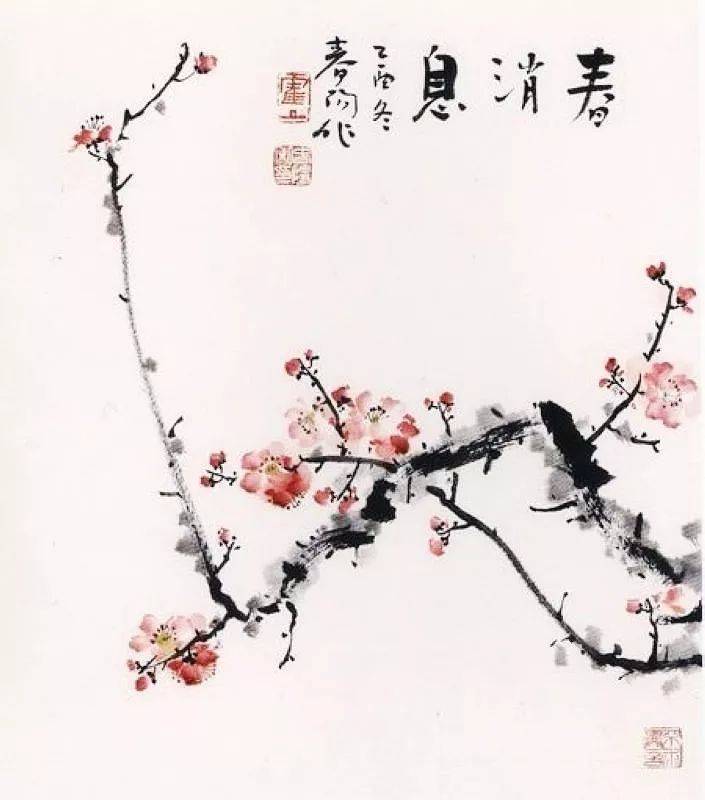 春消息
乙酉冬
春阳作
霍